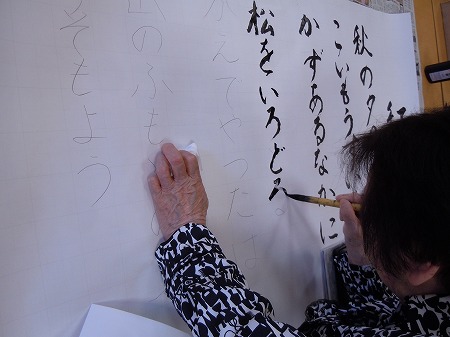 秋の夕
こいもう
かずあるなかに
松をいろどる
えでやつたは
のふも
そもよう